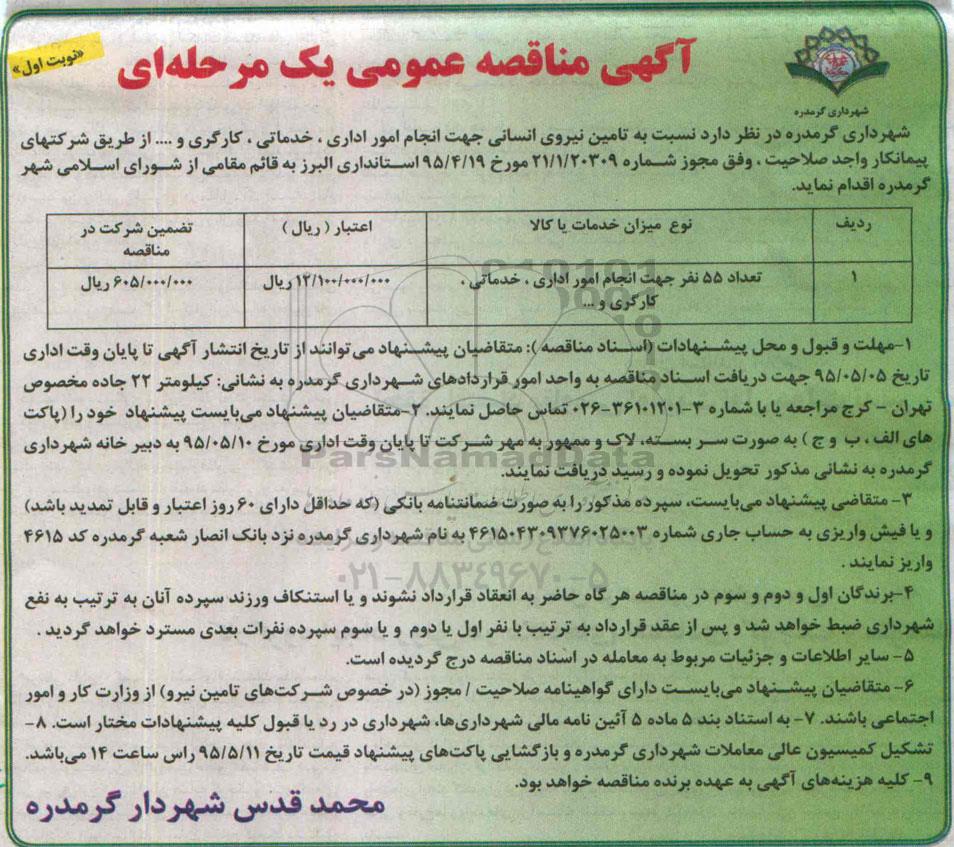 «نوبت اول»
آگهی مناقصه عمومی یک مرحله‌ای
شهرداری گرمدره
شهرداری گرمدره در نظر دارد نسبت به تامین نیروی انسانی جهت انجام امور اداری ، خدماتی ، کارگری و .... از طریق شرکتهای
پیمانکار واجد صلاحیت ، وفق مجوز شماره ۲۱/۱/۲۰۳۰۹ مورخ ۹۵/۴/۱۹ استانداری البرز به قائم مقامی از شورای اسلامی شهر
گرمدره اقدام نماید.
ردیف
نوع میزان خدمات یا کالا
اعتبار ( ریال )
تضمین شرکت در
مناقصه
۱
تعداد ۵۵ نفر جهت انجام امور اداری ، خدماتی ،
کارگری و ...
۱۲/۱۰۰/۰۰۰/۰۰۰ ریال
۶۰۵/۰۰۰/۰۰۰ ریال
۱-مهلت و قبول و محل پیشنهادات (اسناد مناقصه ): متقاضیان پیشنهاد می‌توانند از تاریخ انتشار آگهی تا پایان وقت اداری
تاریخ ۹۵/۰۵/۰۵ جهت دریافت اسناد مناقصه به واحد امور قراردادهای شهرداری گرمدره به نشانی: کیلومتر ۲۲ جاده مخصوص
تهران - کرج مراجعه یا با شماره ۳-۳۶۱۰۱۲۰۱-۰۲۶ تماس حاصل نمایند. ۲-متقاضیان پیشنهاد می‌بایست پیشنهاد خود را (پاکت
های الف ، ب و ج ) به صورت سر بسته، لاک و ممهور به مهر شرکت تا پایان وقت اداری مورخ ۹۵/۰۵/۱۰ به دبیر خانه شهرداری
گرمدره به نشانی مذکور تحویل نموده و رسید دریافت نمایند.
۳- متقاضی پیشنهاد می‌بایست، سپرده مذکور را به صورت ضمانتنامه بانکی (که حداقل دارای ۶۰ روز اعتبار و قابل تمدید باشد)
و یا فیش واریزی به حساب جاری شماره ۴۶۱۵۰۴۳۰۹۳۷۶۰۲۵۰۰۳ به نام شهرداری گرمدره نزد بانک انصار شعبه گرمدره کد ۴۶۱۵
واریز نمایند .
۴-برندگان اول و دوم و سوم در مناقصه هر گاه حاضر به انعقاد قرارداد نشوند و یا استنکاف ورزند سپرده آنان به ترتیب به نفع
شهرداری ضبط خواهد شد و پس از عقد قرارداد به ترتیب با نفر اول یا دوم و یا سوم سپرده نفرات بعدی مسترد خواهد گردید .
۵- سایر اطلاعات و جزئیات مربوط به معامله در اسناد مناقصه درج گردیده است.
۶- متقاضیان پیشنهاد می‌بایست دارای گواهینامه صلاحیت / مجوز (در خصوص شرکت‌های تامین نیرو) از وزارت کار و امور
اجتماعی باشند. ۷- به استناد بند ۵ ماده ۵ آئین نامه مالی شهرداری‌ها، شهرداری در رد یا قبول کلیه پیشنهادات مختار است. ۸-
تشکیل کمیسیون عالی معاملات شهرداری گرمدره و بازگشایی پاکت‌های پیشنهاد قیمت تاریخ ۹۵/۵/۱۱ راس ساعت ۱۴ می‌باشد.
۹- کلیه هزینه‌های آگهی به عهده برنده مناقصه خواهد بود.
محمد قدس شهردار گرمدره
ParsNamadData
۰۲۱-۸۸۳۴۹۶۷۰-۵